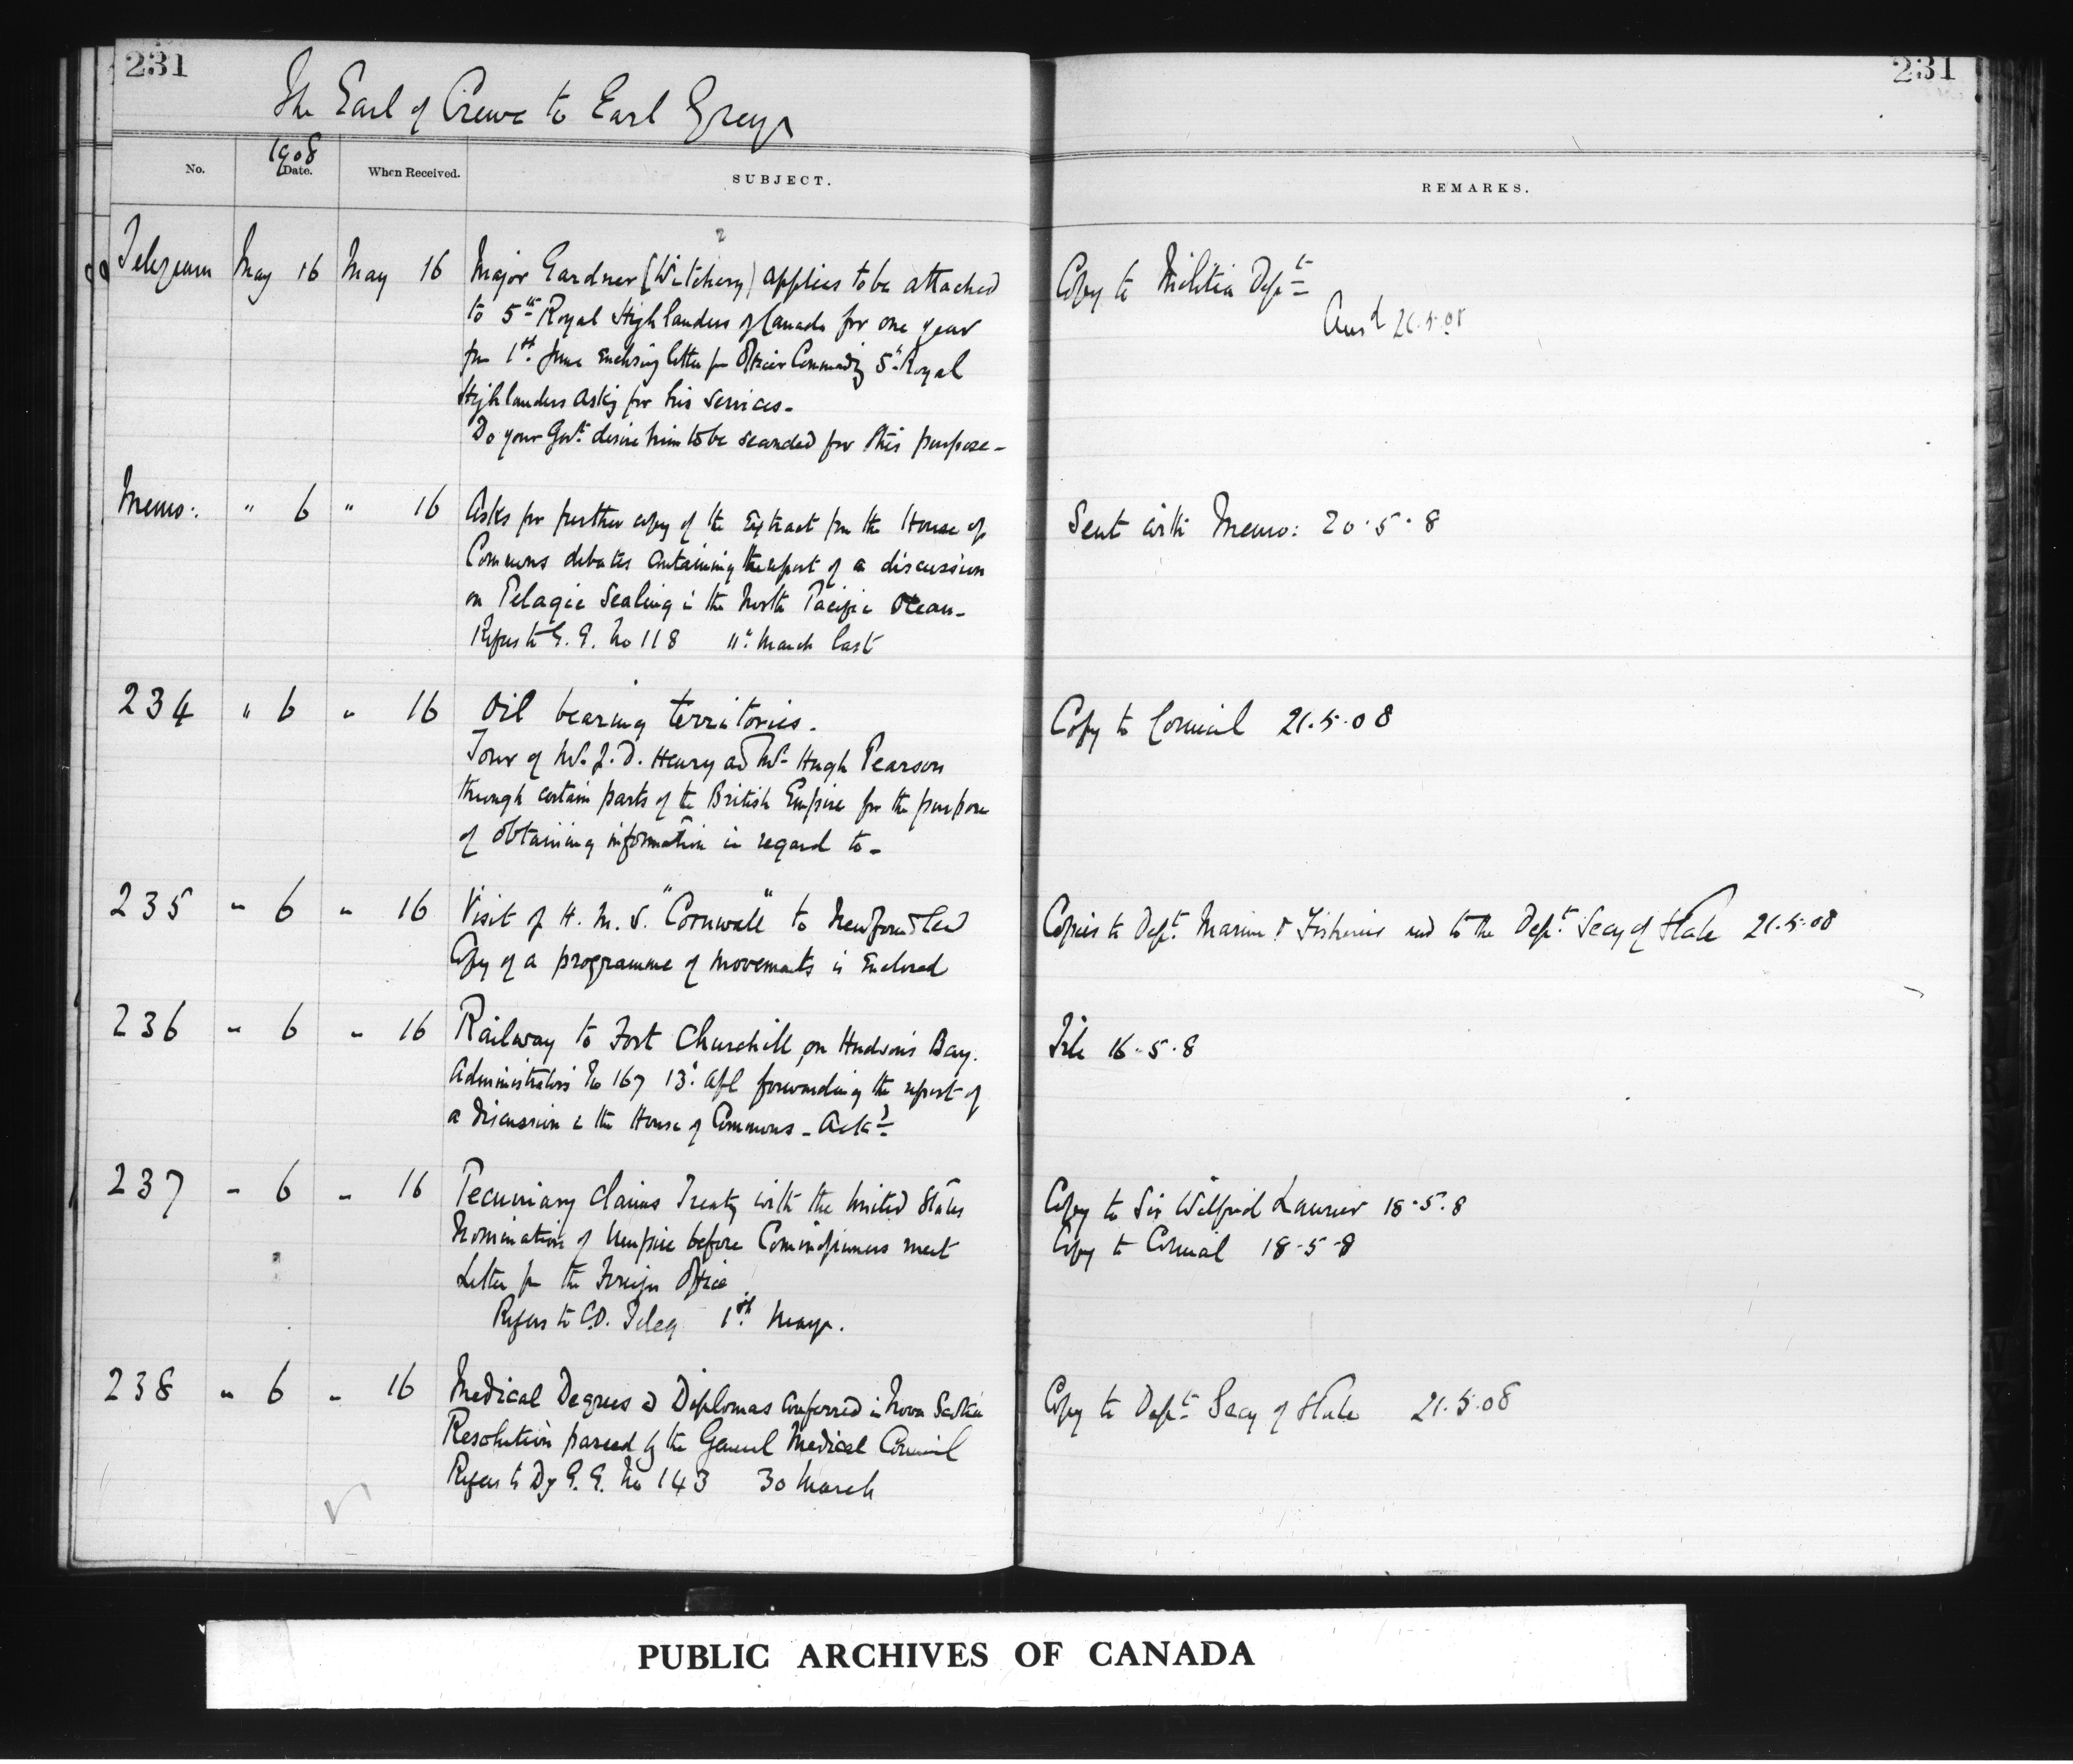 231
231
The Earl of Crewe to Earl Grey
No. 1908 Date. When Received. SUBJECT. REMARKS.
Telegram May 16 May 16 Major Gardner (Witchery) applies to be attached
to 5th Royal Highlanders of Canada for one year
fm 1st June enclosing letter fm Officer Commandg 5th Royal
Highlanders asking for his services -
Do your Govt. desire him to be seconded for this purpose -
Copy to Militia Dept
Ansd 21.5.08
Memo: " 6 " 16 Asks for further copy of the extract fm the House of
Commons debates containing the report of a discussion
on Pelagic Sealing in the North Pacific Ocean -
Refers to G. G. No 118 11th March last
Sent with Memo: 20.5.8
234 " 6 " 16 Oil bearing territories.
Tour of Mr. J. D. Henry and Mr. Hugh Pearson
through certain parts of the British Empire for the purpose
of obtaining information in regard to -
Copy to Council 21.5.08
235 " 6 " 16 Visit of H. M. S. "Cornwall" to Newfoundland
Copy of a programme of movements is enclosed
Copies to Dept. Marine & Fisheries and to the Dept. Secy of State 21.5.08
236 " 6 " 16 Railway to Fort Churchill, on Hudson's Bay.
Administrator's No 167 13th Apl forwarding the report of
a discussion in the House of Commons - Ackd
File 16.5.8
237 " 6 " 16 Pecuniary claims Treaty with the United States
Nomination of Umpire before Commissioners meet
Letter fm the Foreign Office
Refers to C.O. Teleg 1st May.
Copy to Sir Wilfrid Laurier 18.5.8
Copy to Council 18-5-8
238 " 6 " 16 Medical Degrees & Diplomas conferred in Nova Scotia
Resolution passed by the General Medical Council
Refers to Dy G. G. No 143 30 March
Copy to Dept. Secy of State 21.5.08
PUBLIC ARCHIVES OF CANADA